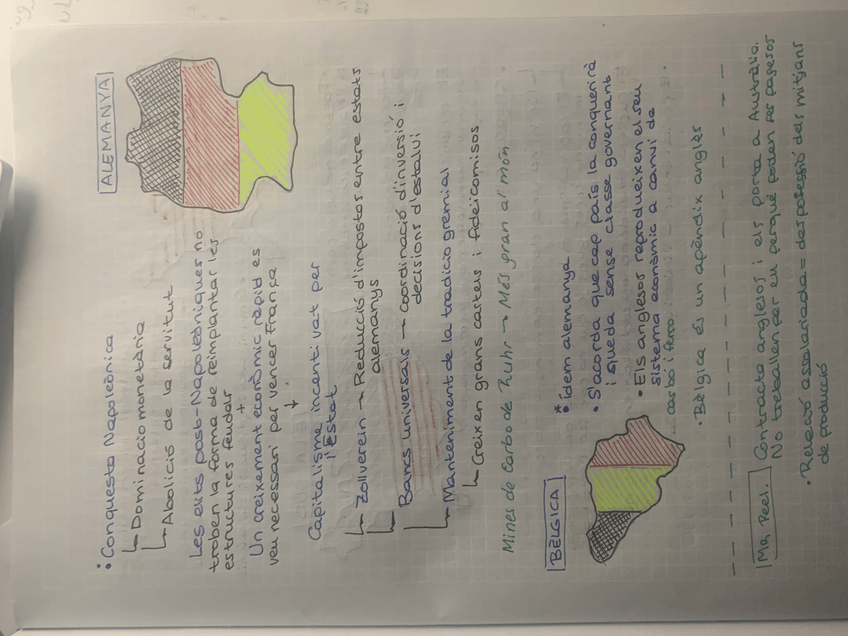 ALEMANYA
• Conquesta Napoleònica
↳ Dominacio monetària
↳ Abolició de la servitut
Les elits post-Napoleòniques no
troben la forma de reimplantar les
estructures feudals
+
Un creixement econòmic ràpid es
veu necessari per vencer França
↓
Capitalisme incentivat per
l'Estat
↳ Zollverein → Reducció d'impostos entre estats
alemanys
↳ Bancs universals → Coordinació d'inversió i
decisions d'estalvi
↳ Manteniment de la tradicio gremial
↳ Creixen grans cartels i fideicomisos
Mines de Carbo de Ruhr → Més gran al món
BÈLGICA
* Ídem alemanya
• S'acorda que cap país la conquerirà
i queda sense classe governant
• Els anglesos reprodueixen el seu
sistema econòmic a canvi de
carbó i ferro.
• Bèlgica és un apèndix anglès
Mr Peel. Contracta anglesos i els porta a Austràlia.
No treballen per ell perquè poden ser pagesos
• Relació assalariada = desposseció dels mitjans
de producció